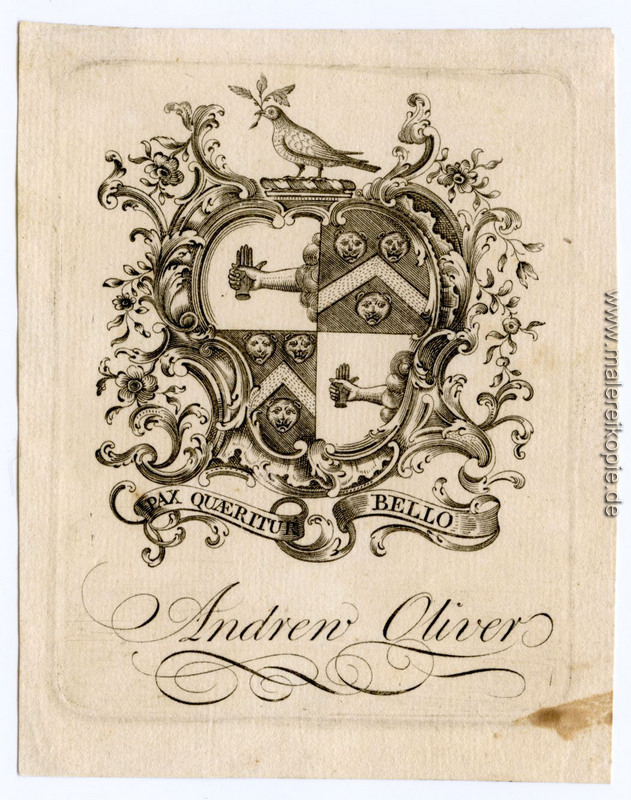 PAX QUÆRITUR BELLO
Andrew Oliver
www.malereikopie.de